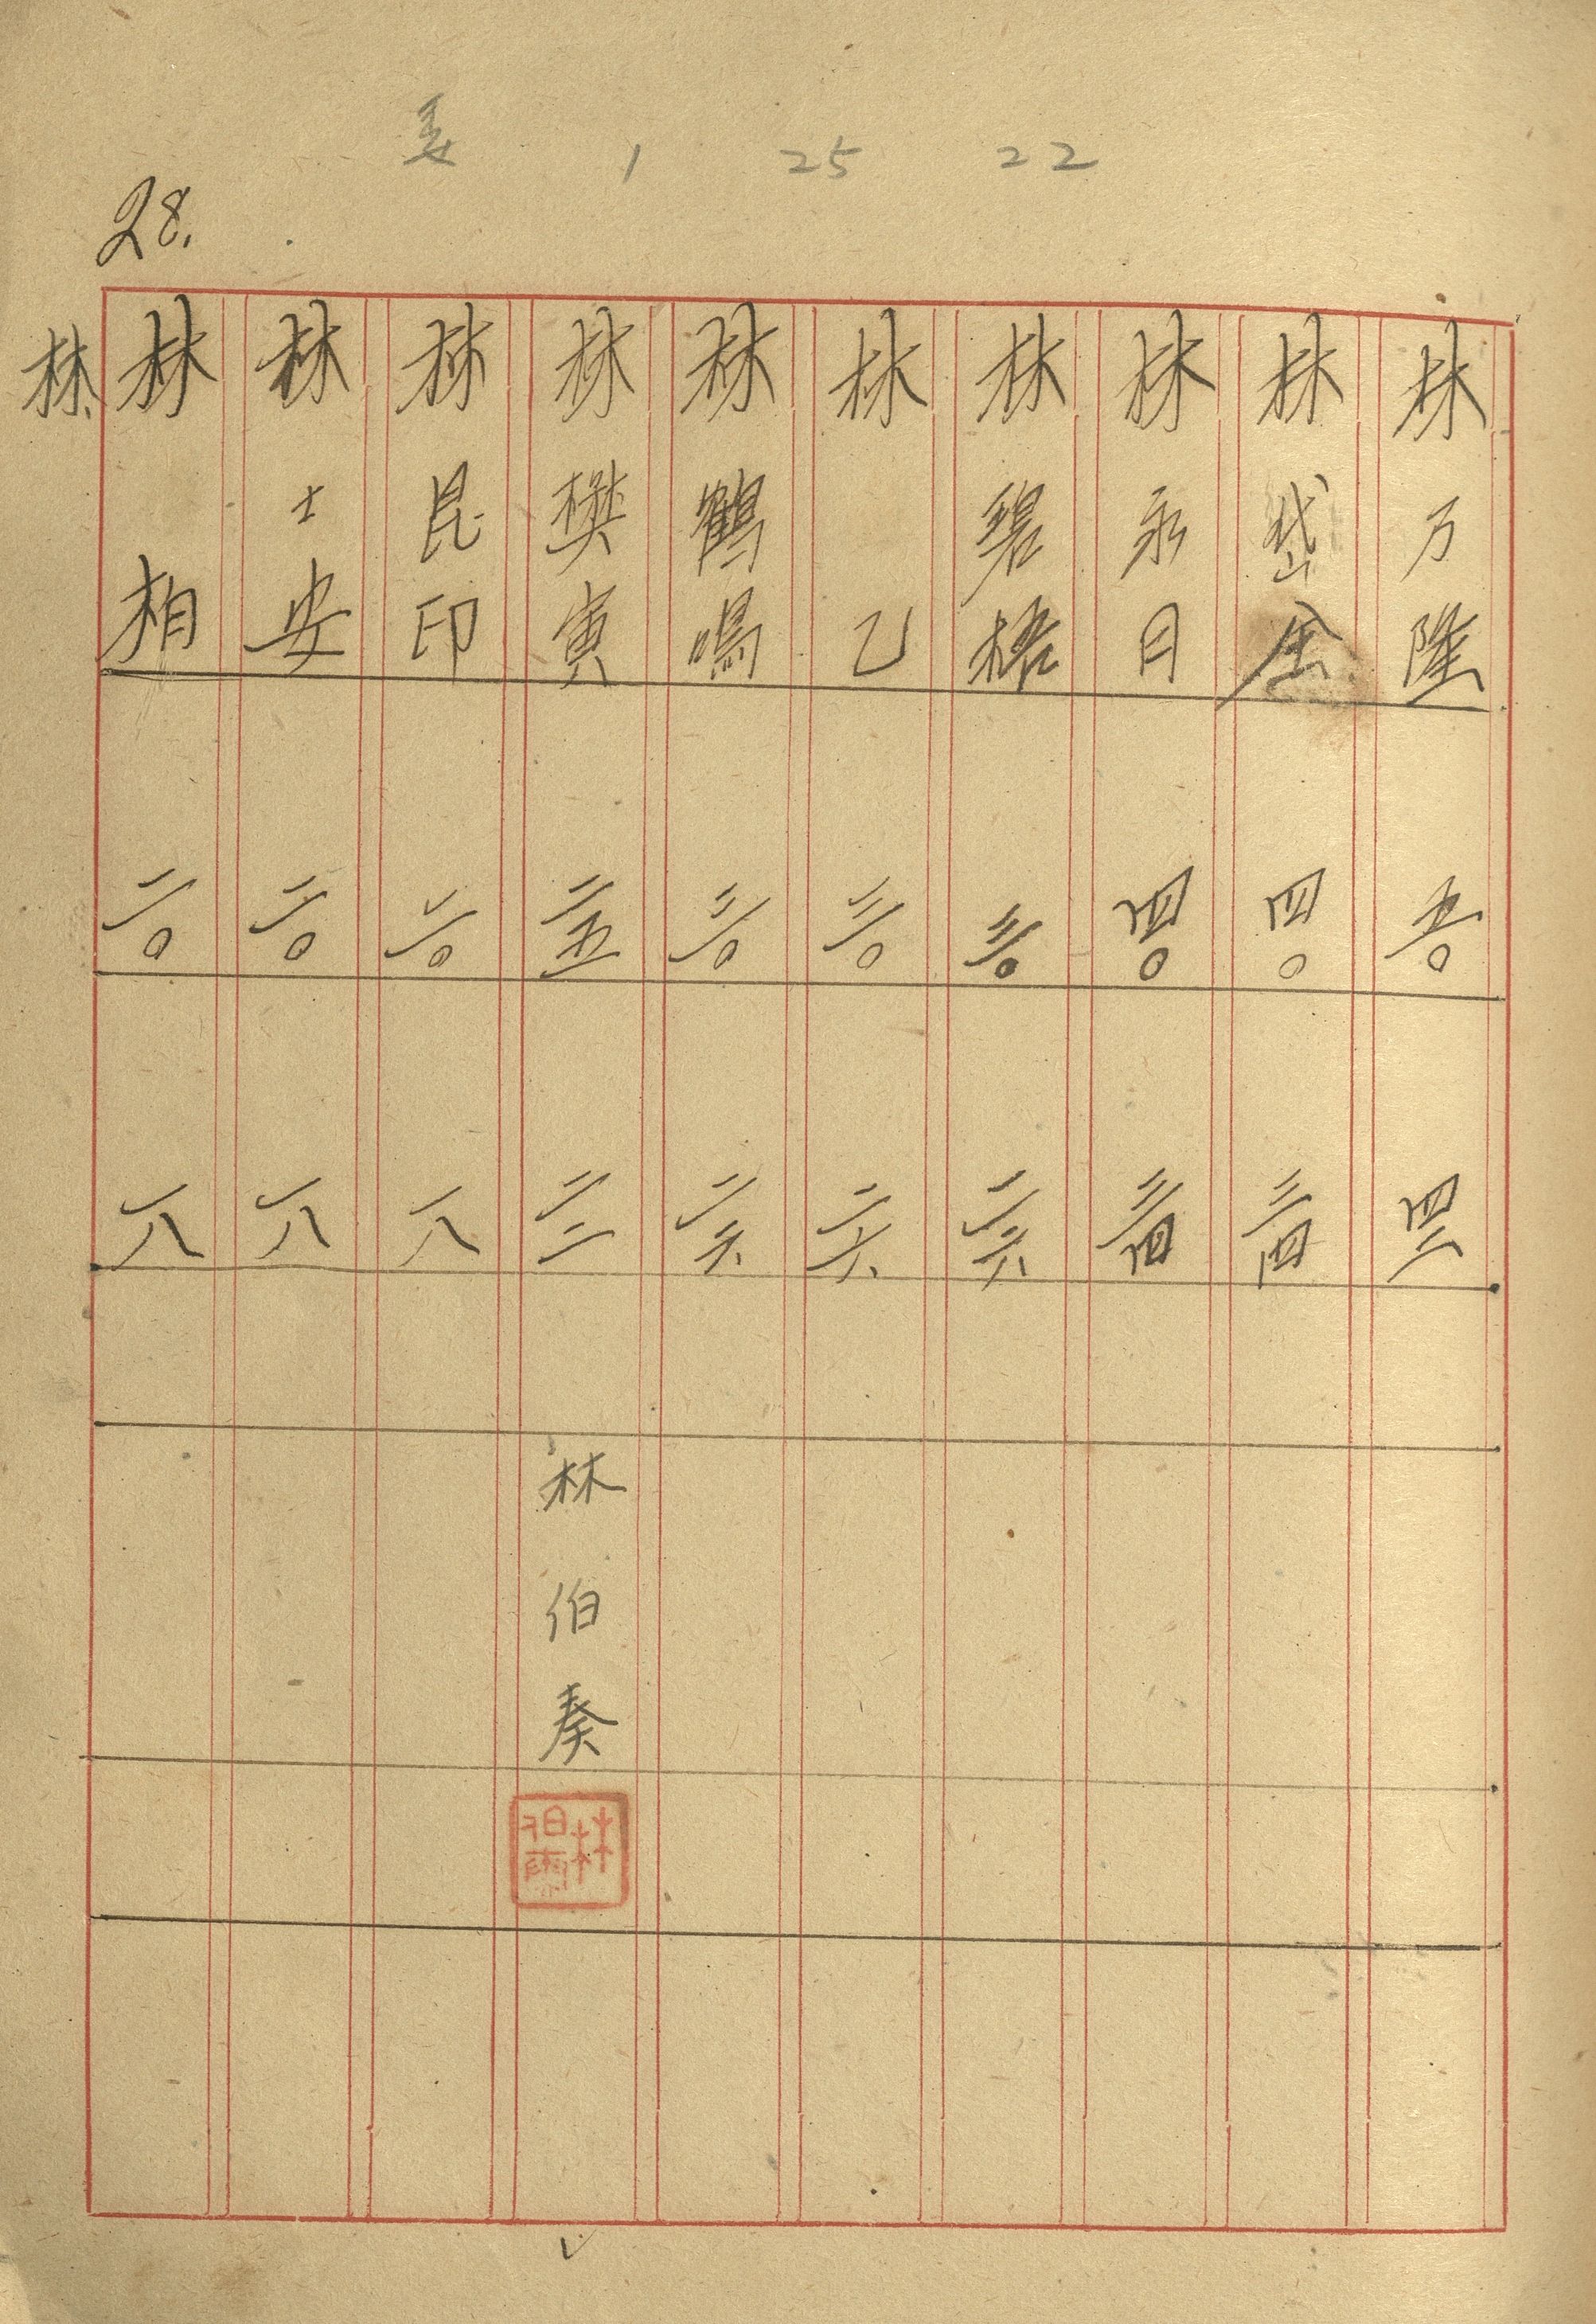 1 25 22
28.
林万隆 五〇 四二
林岱 四〇 三四
林永日 四〇 三四
林碧梧 三〇 二六
林乙 三〇 二六
林鶴鳴 三〇 二六
林樊寅 二五 二二 林伯奏
林昆印 二〇 一八
林士安 二〇 一八
林相 二〇 一八
林